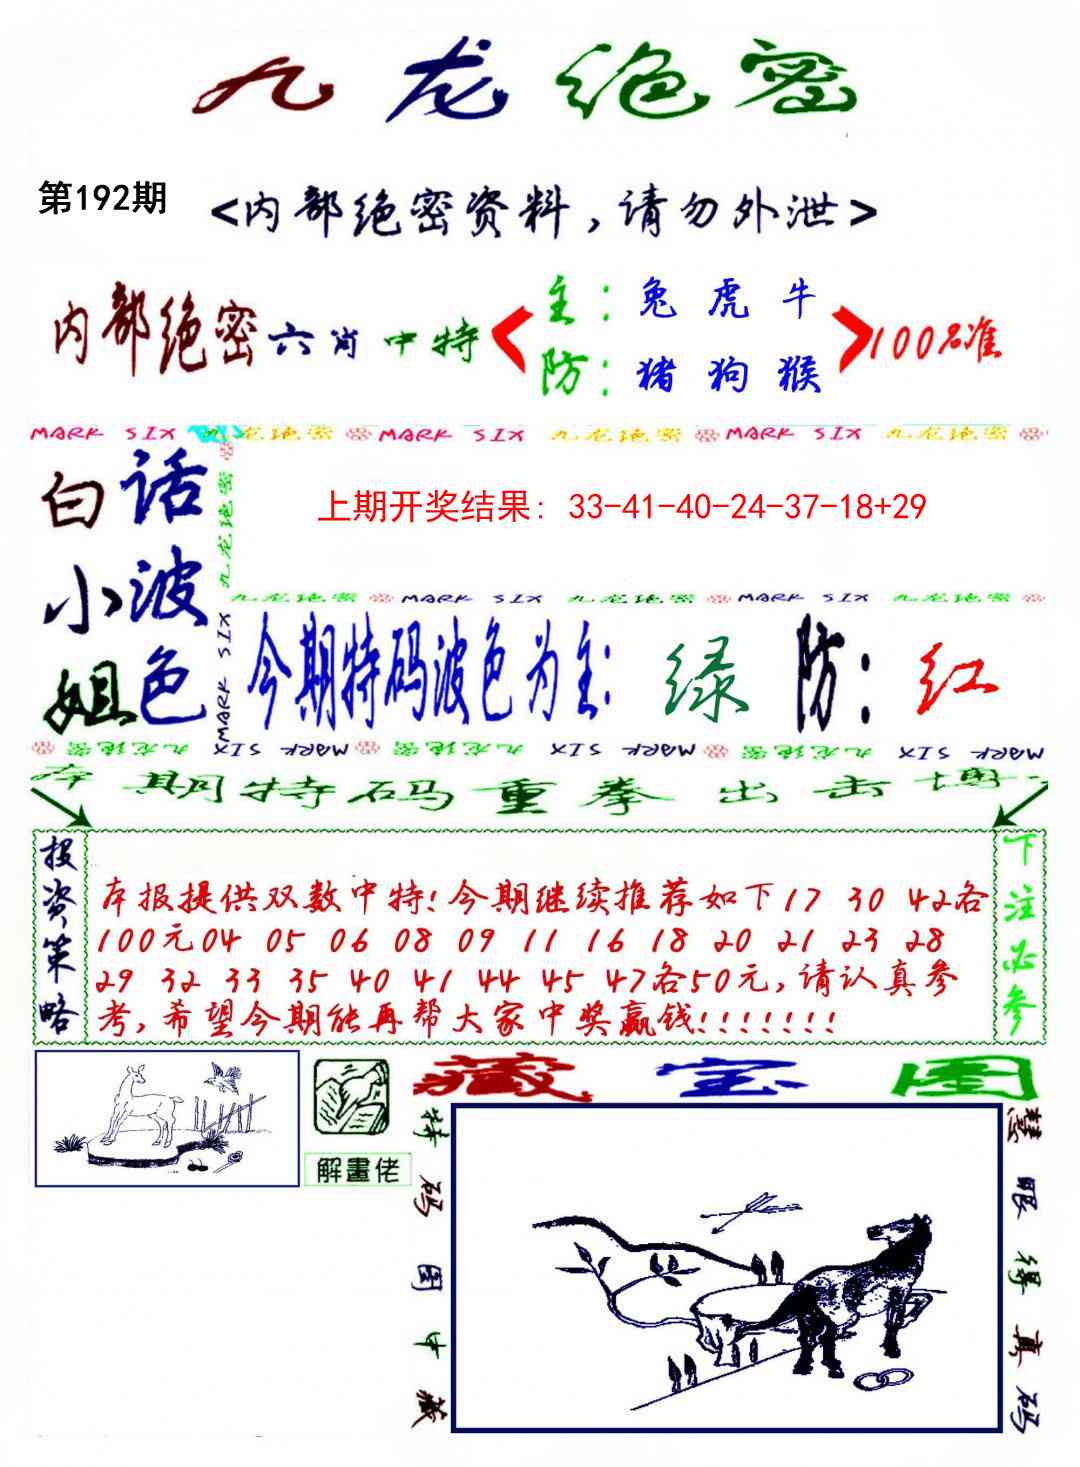 九龙绝密
第192期
<内部绝密资料,请勿外泄>
内部绝密六肖中特
主:兔 虎 牛
防:猪 狗 猴
100%准
MARK SIX 九龙绝密 MARK SIX 九龙绝密 MARK SIX 九龙绝密
白话
小波
姐色
九龙绝密
MARK SIX
上期开奖结果: 33-41-40-24-37-18+29
九龙绝密 MARK SIX 九龙绝密 MARK SIX 九龙绝密
今期特码波色为主: 绿 防: 红
九龙绝密 MARK SIX 九龙绝密 MARK SIX 九龙绝密 MARK SIX
本期特码重拳出击博
投资策略
本报提供双数中特!今期继续推荐如下17 30 42各
100元04 05 06 08 09 11 16 18 20 21 23 28
29 32 33 35 40 41 44 45 47各50元,请认真参
考,希望今期能再帮大家中奖赢钱!!!!!!!
下注必参
解畫佬
藏宝图
特码图中藏
慧眼得真码